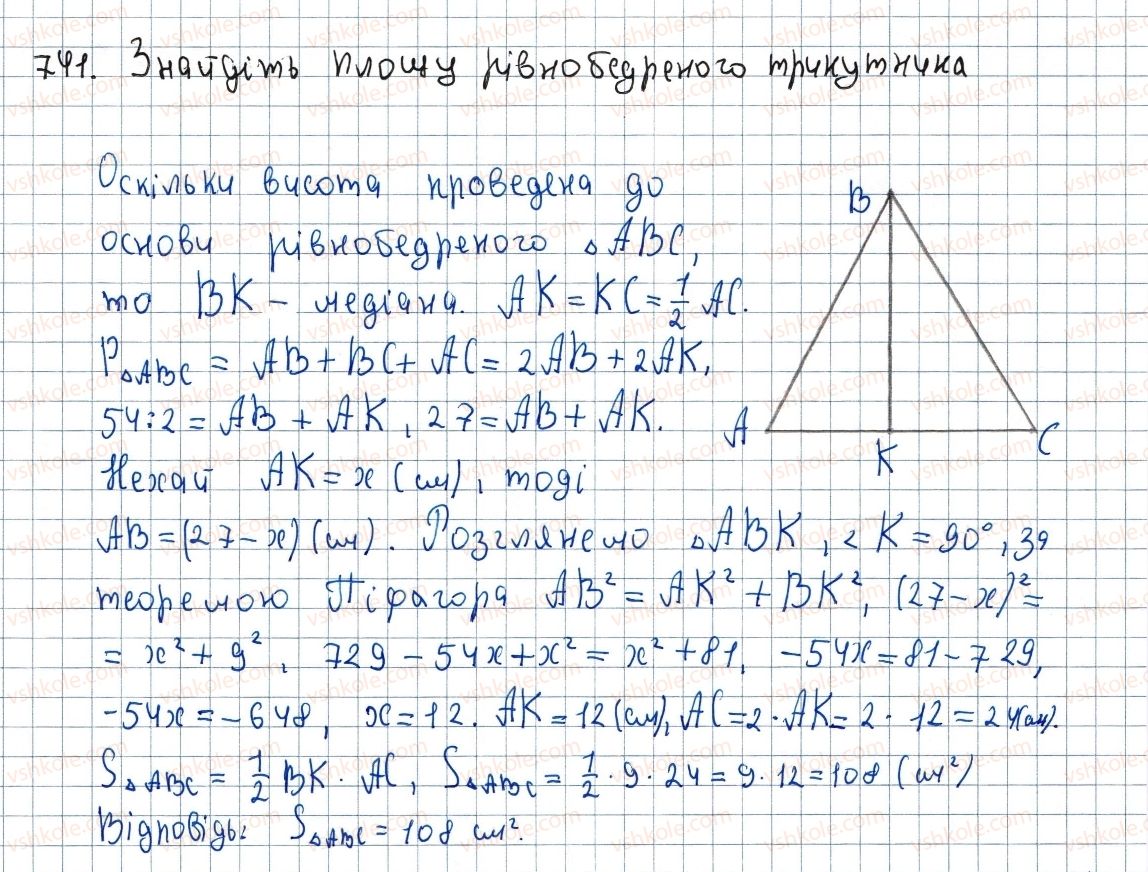 741. Знайдіть площу рівнобедреного трикутника
Оскільки висота проведена до
основи рівнобедреного △ABC,
то BK – медіана. AK = KC = 1/2 AC.
P△ABC = AB + BC + AC = 2AB + 2AK,
54:2 = AB + AK, 27 = AB + AK.
Нехай AK = x (см), тоді
AB = (27 – x) (см). Розглянемо △ABK, ∠K = 90°, за
теоремою Піфагора AB² = AK² + BK², (27 – x)² =
= x² + 9², 729 – 54x + x² = x² + 81, –54x = 81 – 729,
–54x = –648, x = 12. AK = 12 (см), AC = 2 · AK = 2 · 12 = 24 (см).
S△ABC = 1/2 BK · AC, S△ABC = 1/2 · 9 · 24 = 9 · 12 = 108 (см²)
Відповідь: S△ABC = 108 см².
B
A
K
C
vshkole.com